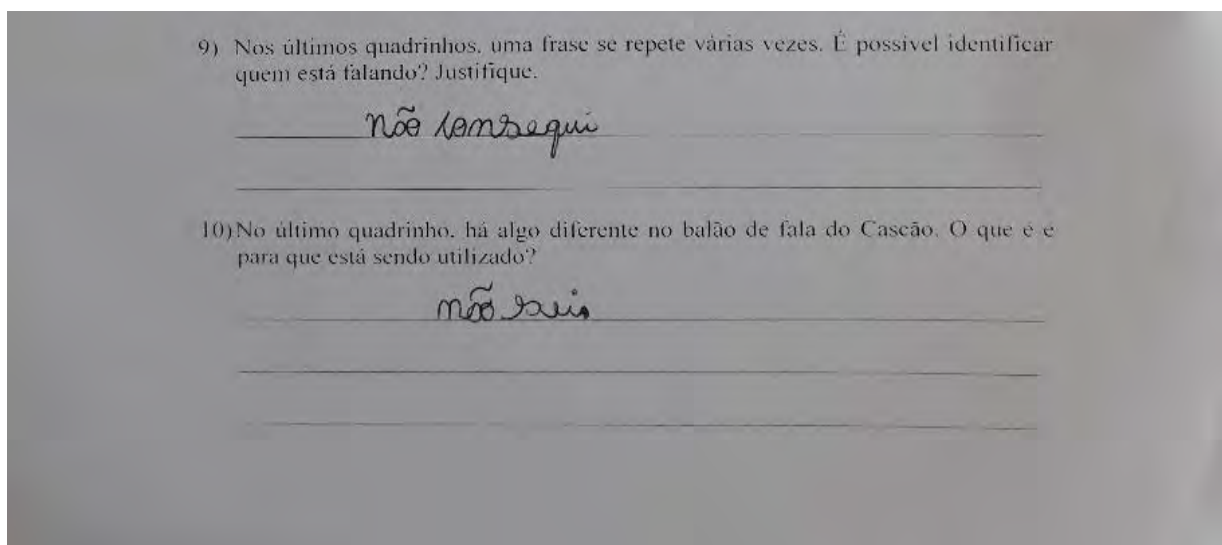 9) Nos últimos quadrinhos, uma frase se repete várias vezes. É possível identificar
quem está falando? Justifique.
não consegui
10) No último quadrinho, há algo diferente no balão de fala do Cascão. O que é e
para que está sendo utilizado?
não seis